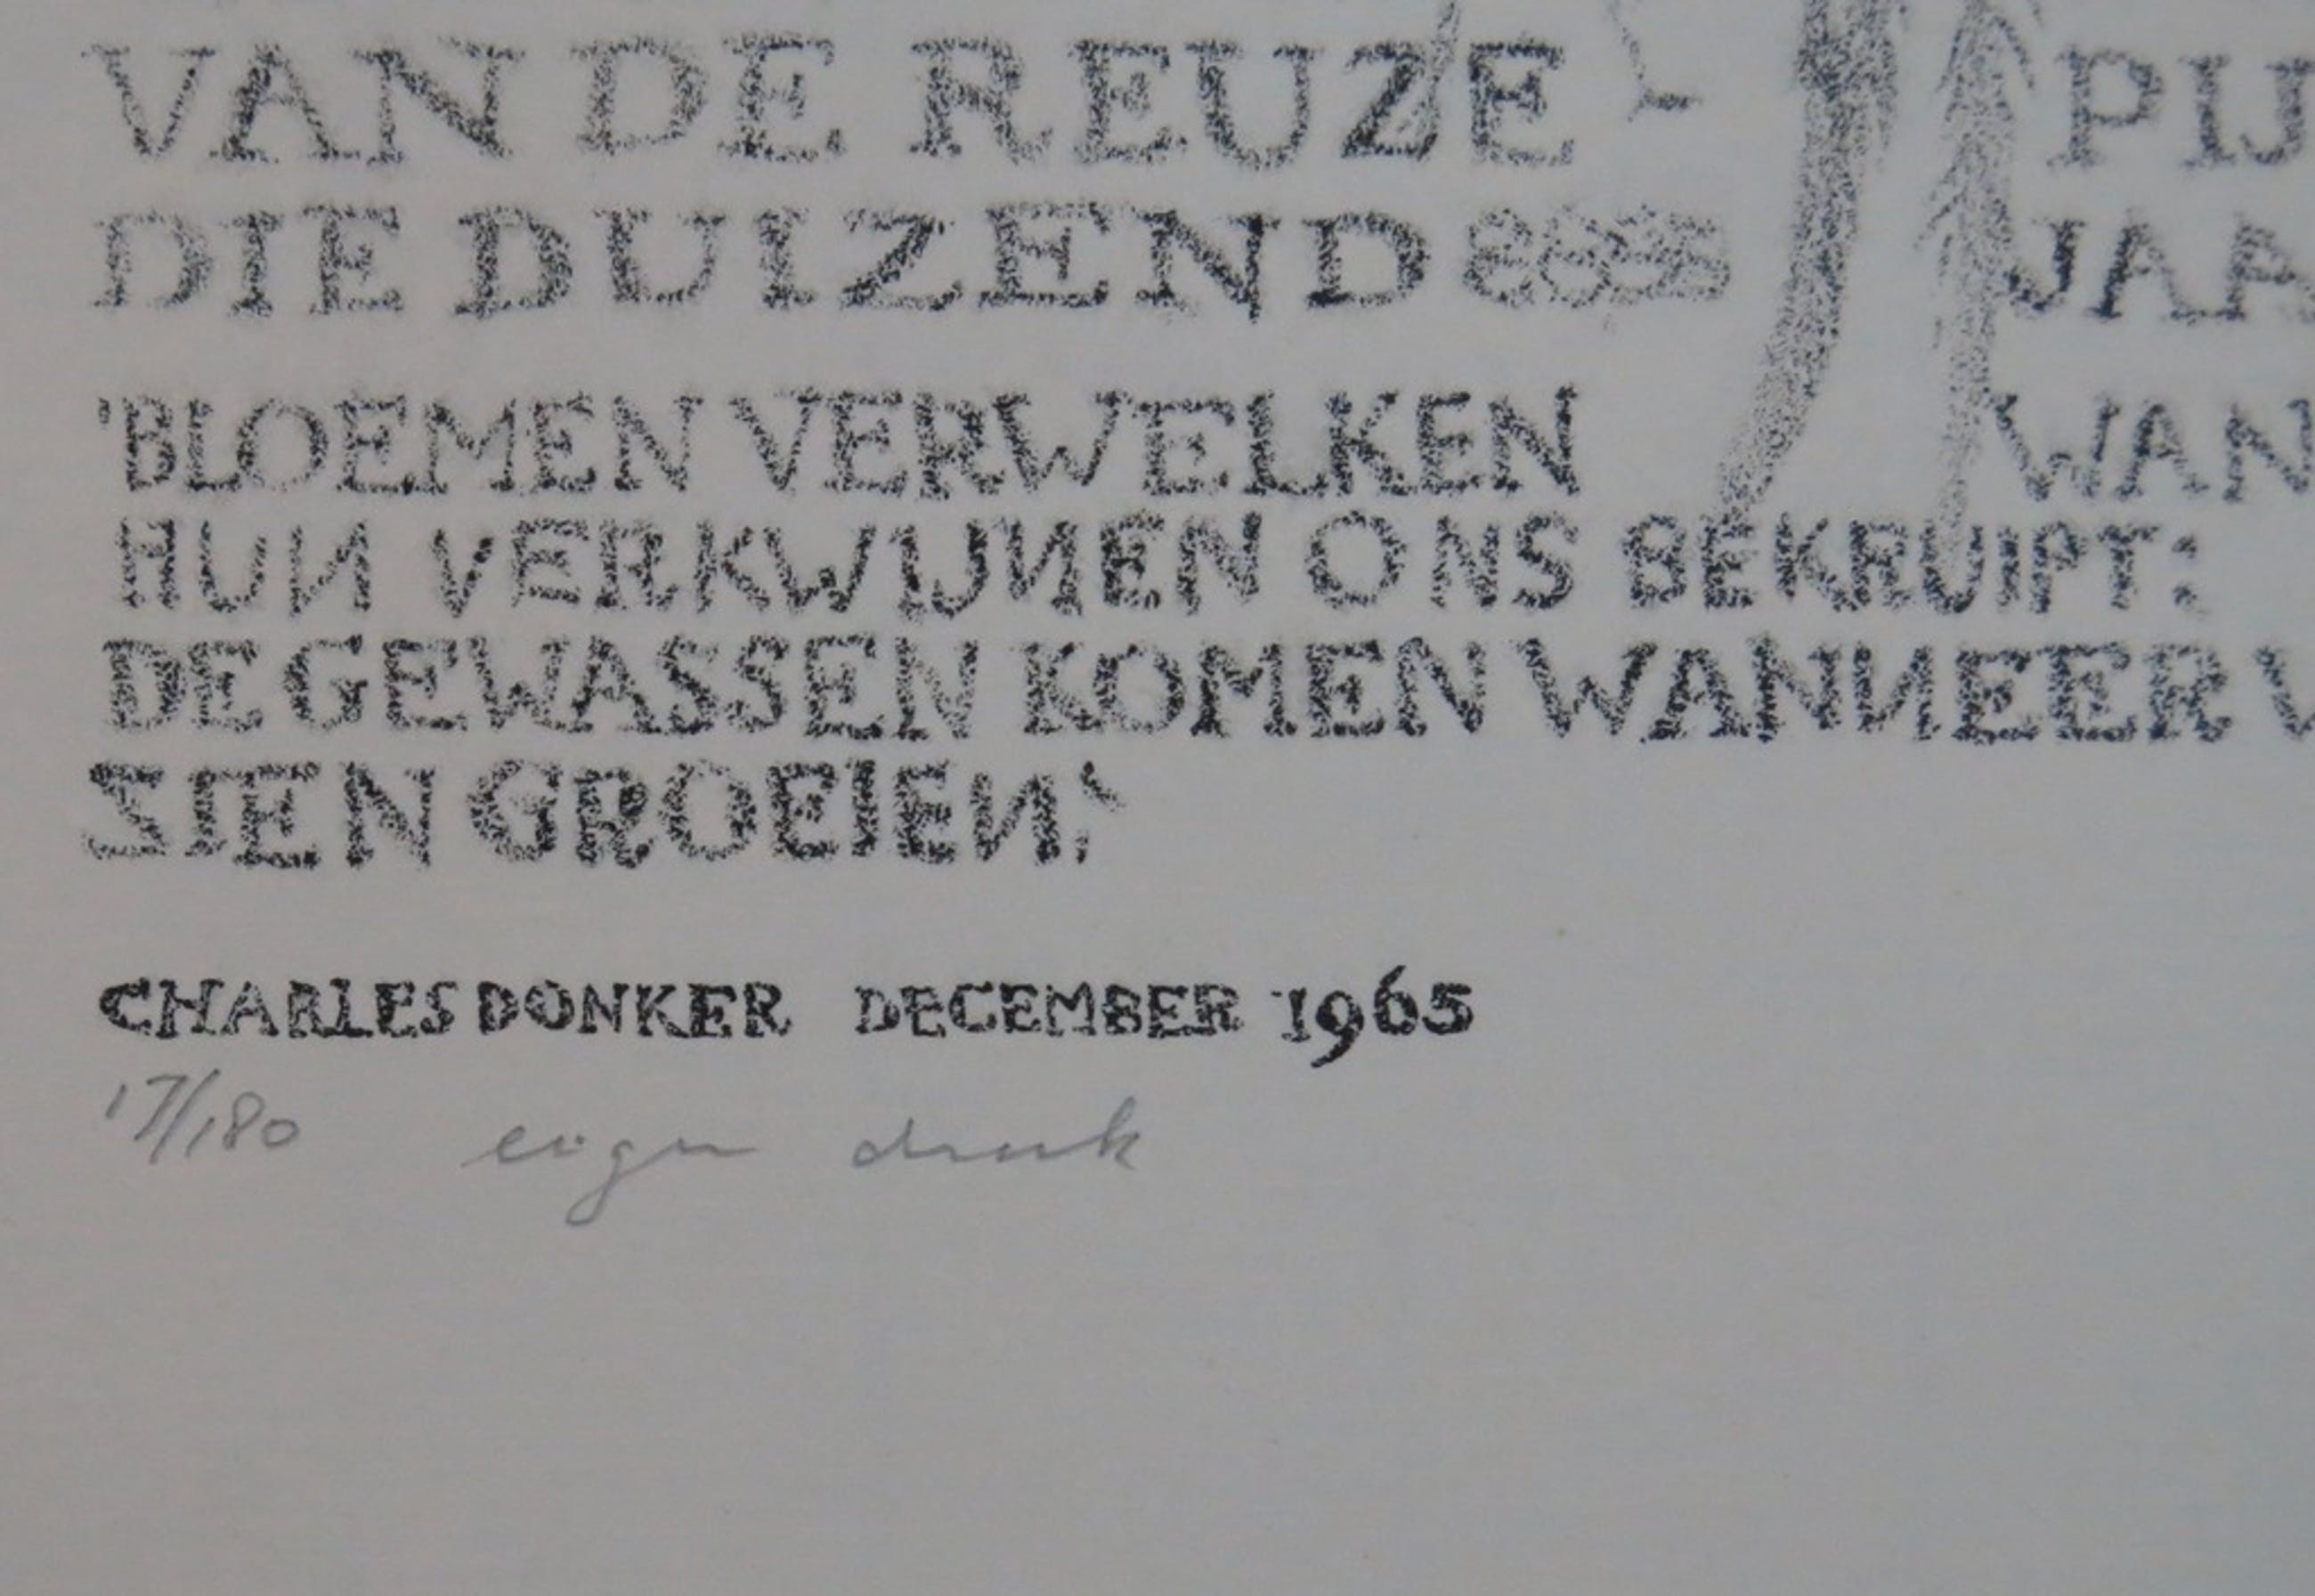 VAN DE REUZE - PIJ
DIE DUIZEND JAA
'BLOEMEN VERWELKEN WAN
HUN VERKWIJNEN ONS BEKRUIPT:
DE GEWASSEN KOMEN WANNEER
SIEN GROEIEN.'
CHARLES DONKER DECEMBER 1965
17/180 eigen druk